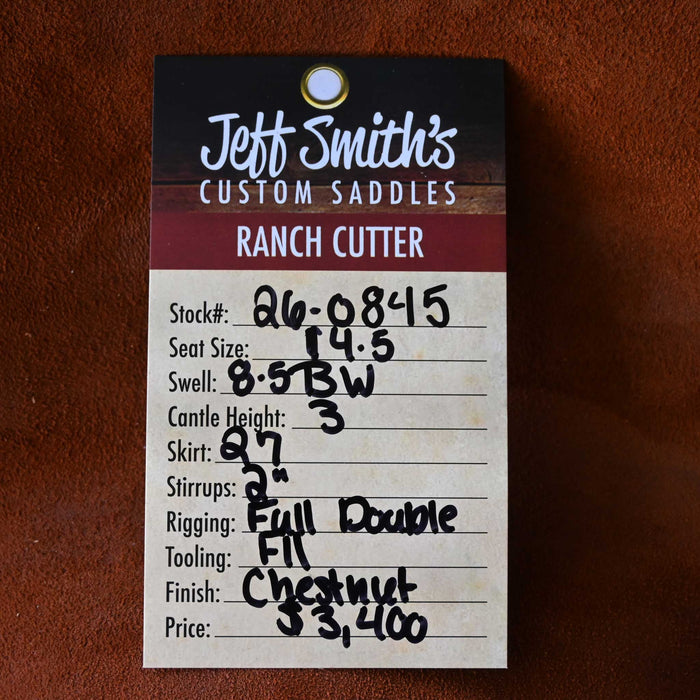 Jeff Smith's
CUSTOM SADDLES
RANCH CUTTER
Stock#: 26-0845
Seat Size: 14.5
Swell: 8.5 BW
Cantle Height: 3
Skirt: 27
Stirrups: 2"
Rigging: Full Double
Tooling: Fll
Finish: Chestnut
Price: $3,400